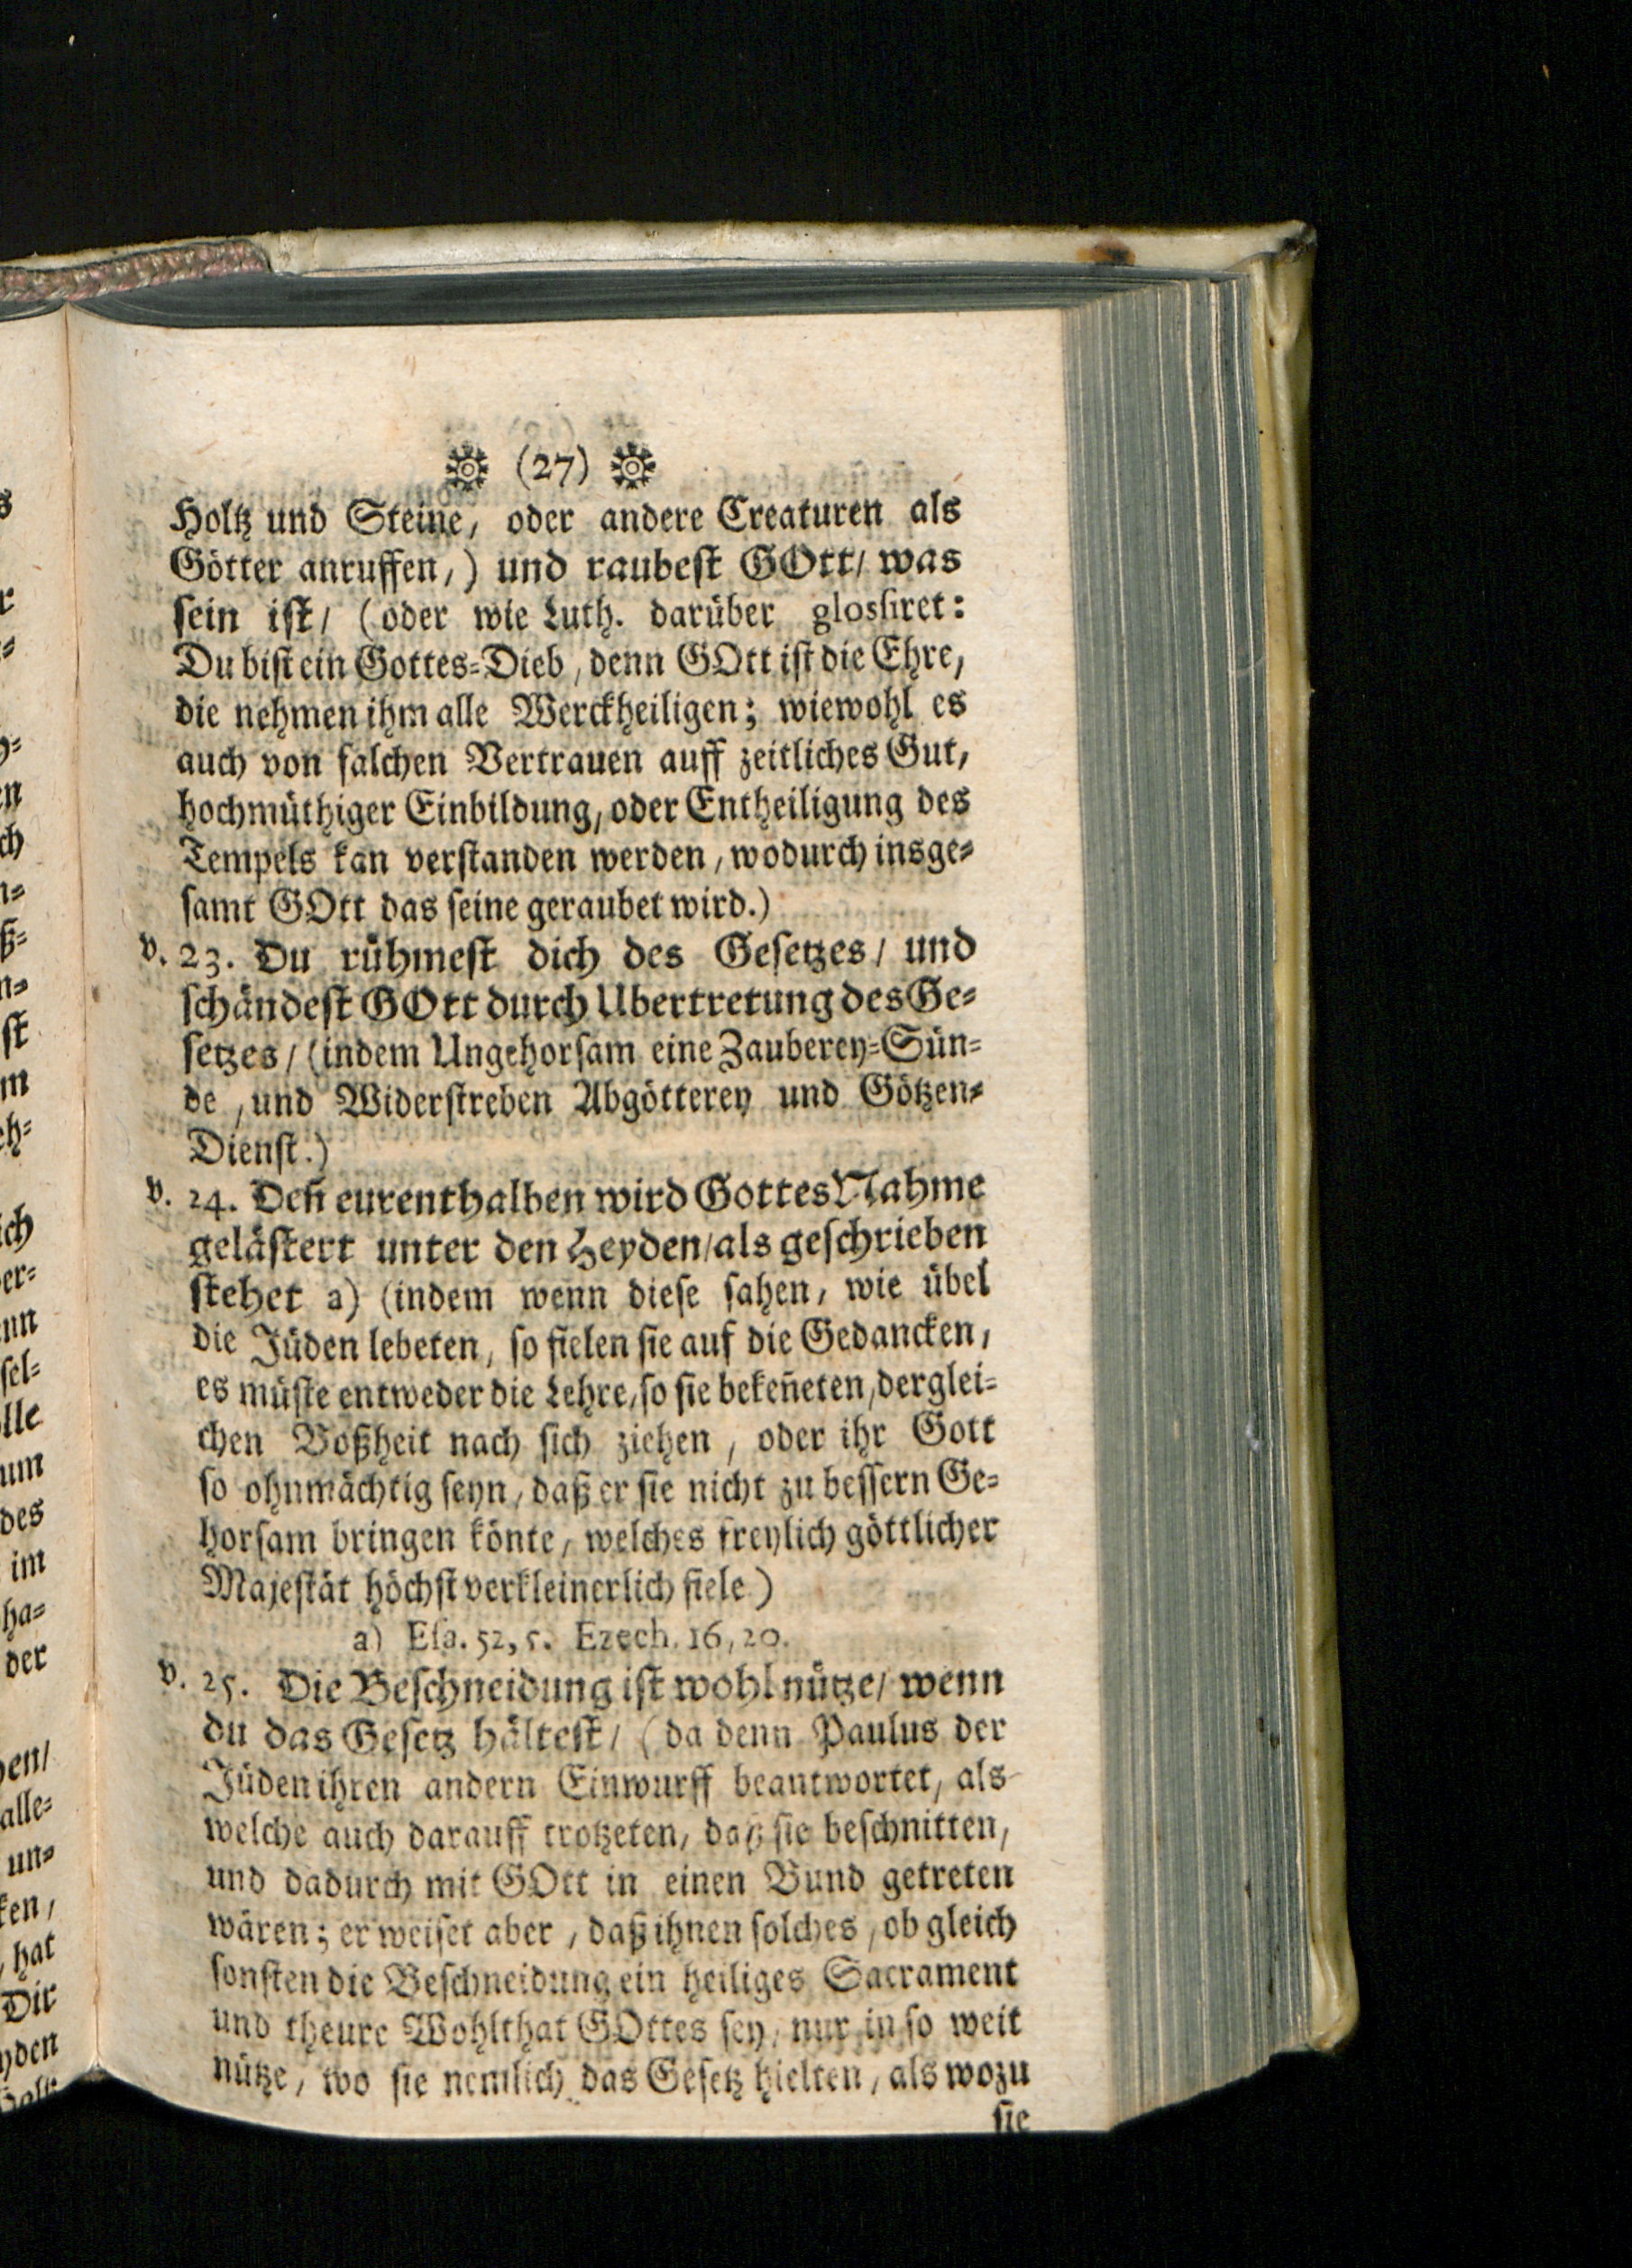 (27)
Holtz und Steine, oder andere Creaturen als
Götter anruffen,) und raubest GOtt/ was
sein ist/ (oder wie Luth. darüber glossiret:
Du bist ein Gottes-Dieb, denn GOtt ist die Ehre,
die nehmen ihm alle Werckheiligen; wiewohl es
auch von falchen Vertrauen auff zeitliches Gut,
hochmüthiger Einbildung, oder Entheiligung des
Tempels kan verstanden werden, wodurch insge-
samt GOtt das seine geraubet wird.)
v. 23. Du rühmest dich des Gesetzes/ und
schändest GOtt durch Ubertretung des Ge-
setzes/ (indem Ungehorsam eine Zauberey-Sün-
de, und Widerstreben Abgötterey und Götzen-
Dienst.)
v. 24. Deñ eurenthalben wird Gottes Nahme
gelästert unter den Heyden/ als geschrieben
stehet a) (indem wenn diese sahen, wie übel
die Jüden lebeten, so fielen sie auf die Gedancken,
es müste entweder die Lehre, so sie bekeñeten, derglei-
chen Boßheit nach sich ziehen, oder ihr Gott
so ohnmächtig seyn, daß er sie nicht zu bessern Ge-
horsam bringen könte, welches freylich göttlicher
Majestät höchst verkleinerlich fiele)
a) Esa. 52, 5. Ezech. 16, 20.
v. 25. Die Beschneidung ist wohl nütze/ wenn
du das Gesetz hältest/ (da denn Paulus der
Jüden ihren andern Einwurff beantwortet, als
welche auch darauff trotzeten, daß sie beschnitten,
und dadurch mit GOtt in einen Bund getreten
wären; er weiset aber, daß ihnen solches, ob gleich
sonsten die Beschneidung ein heiliges Sacrament
und theure Wohlthat GOttes sey, nur in so weit
nütze, wo sie nemlich das Gesetz hielten, als wozu
sie